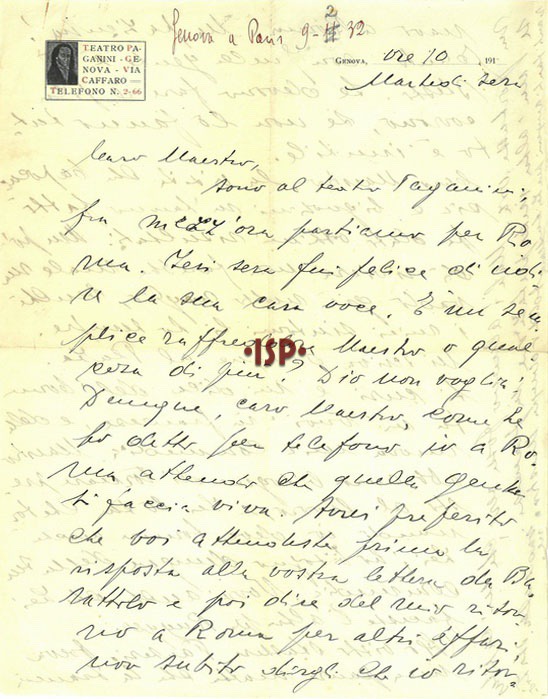 Genova a Paris 9-2 32
TEATRO PA-
GANINI - GE-
NOVA - VIA
CAFFARO -
TELEFONO N. 2-66
GENOVA, ore 10 191
Martedì sera
Caro Maestro,
sono al teatro Paganini;
fra mezz'ora partiamo per Ro
ma. Ieri sera fui felice di udi
re la sua cara voce. È un sem
plice raffreddore Maestro o qual
cosa di più? Dio non voglia!
Dunque, caro Maestro, come le
ho detto per telefono io a Ro-
ma attendo che quella gente
si faccia viva. Avrei preferito
che voi attendeste prima la
risposta alla vostra lettera da Ba
rattolo e poi dire del mio ritor
no a Roma per altri affari,
non subito dirgli che io ritor=
•ISP•